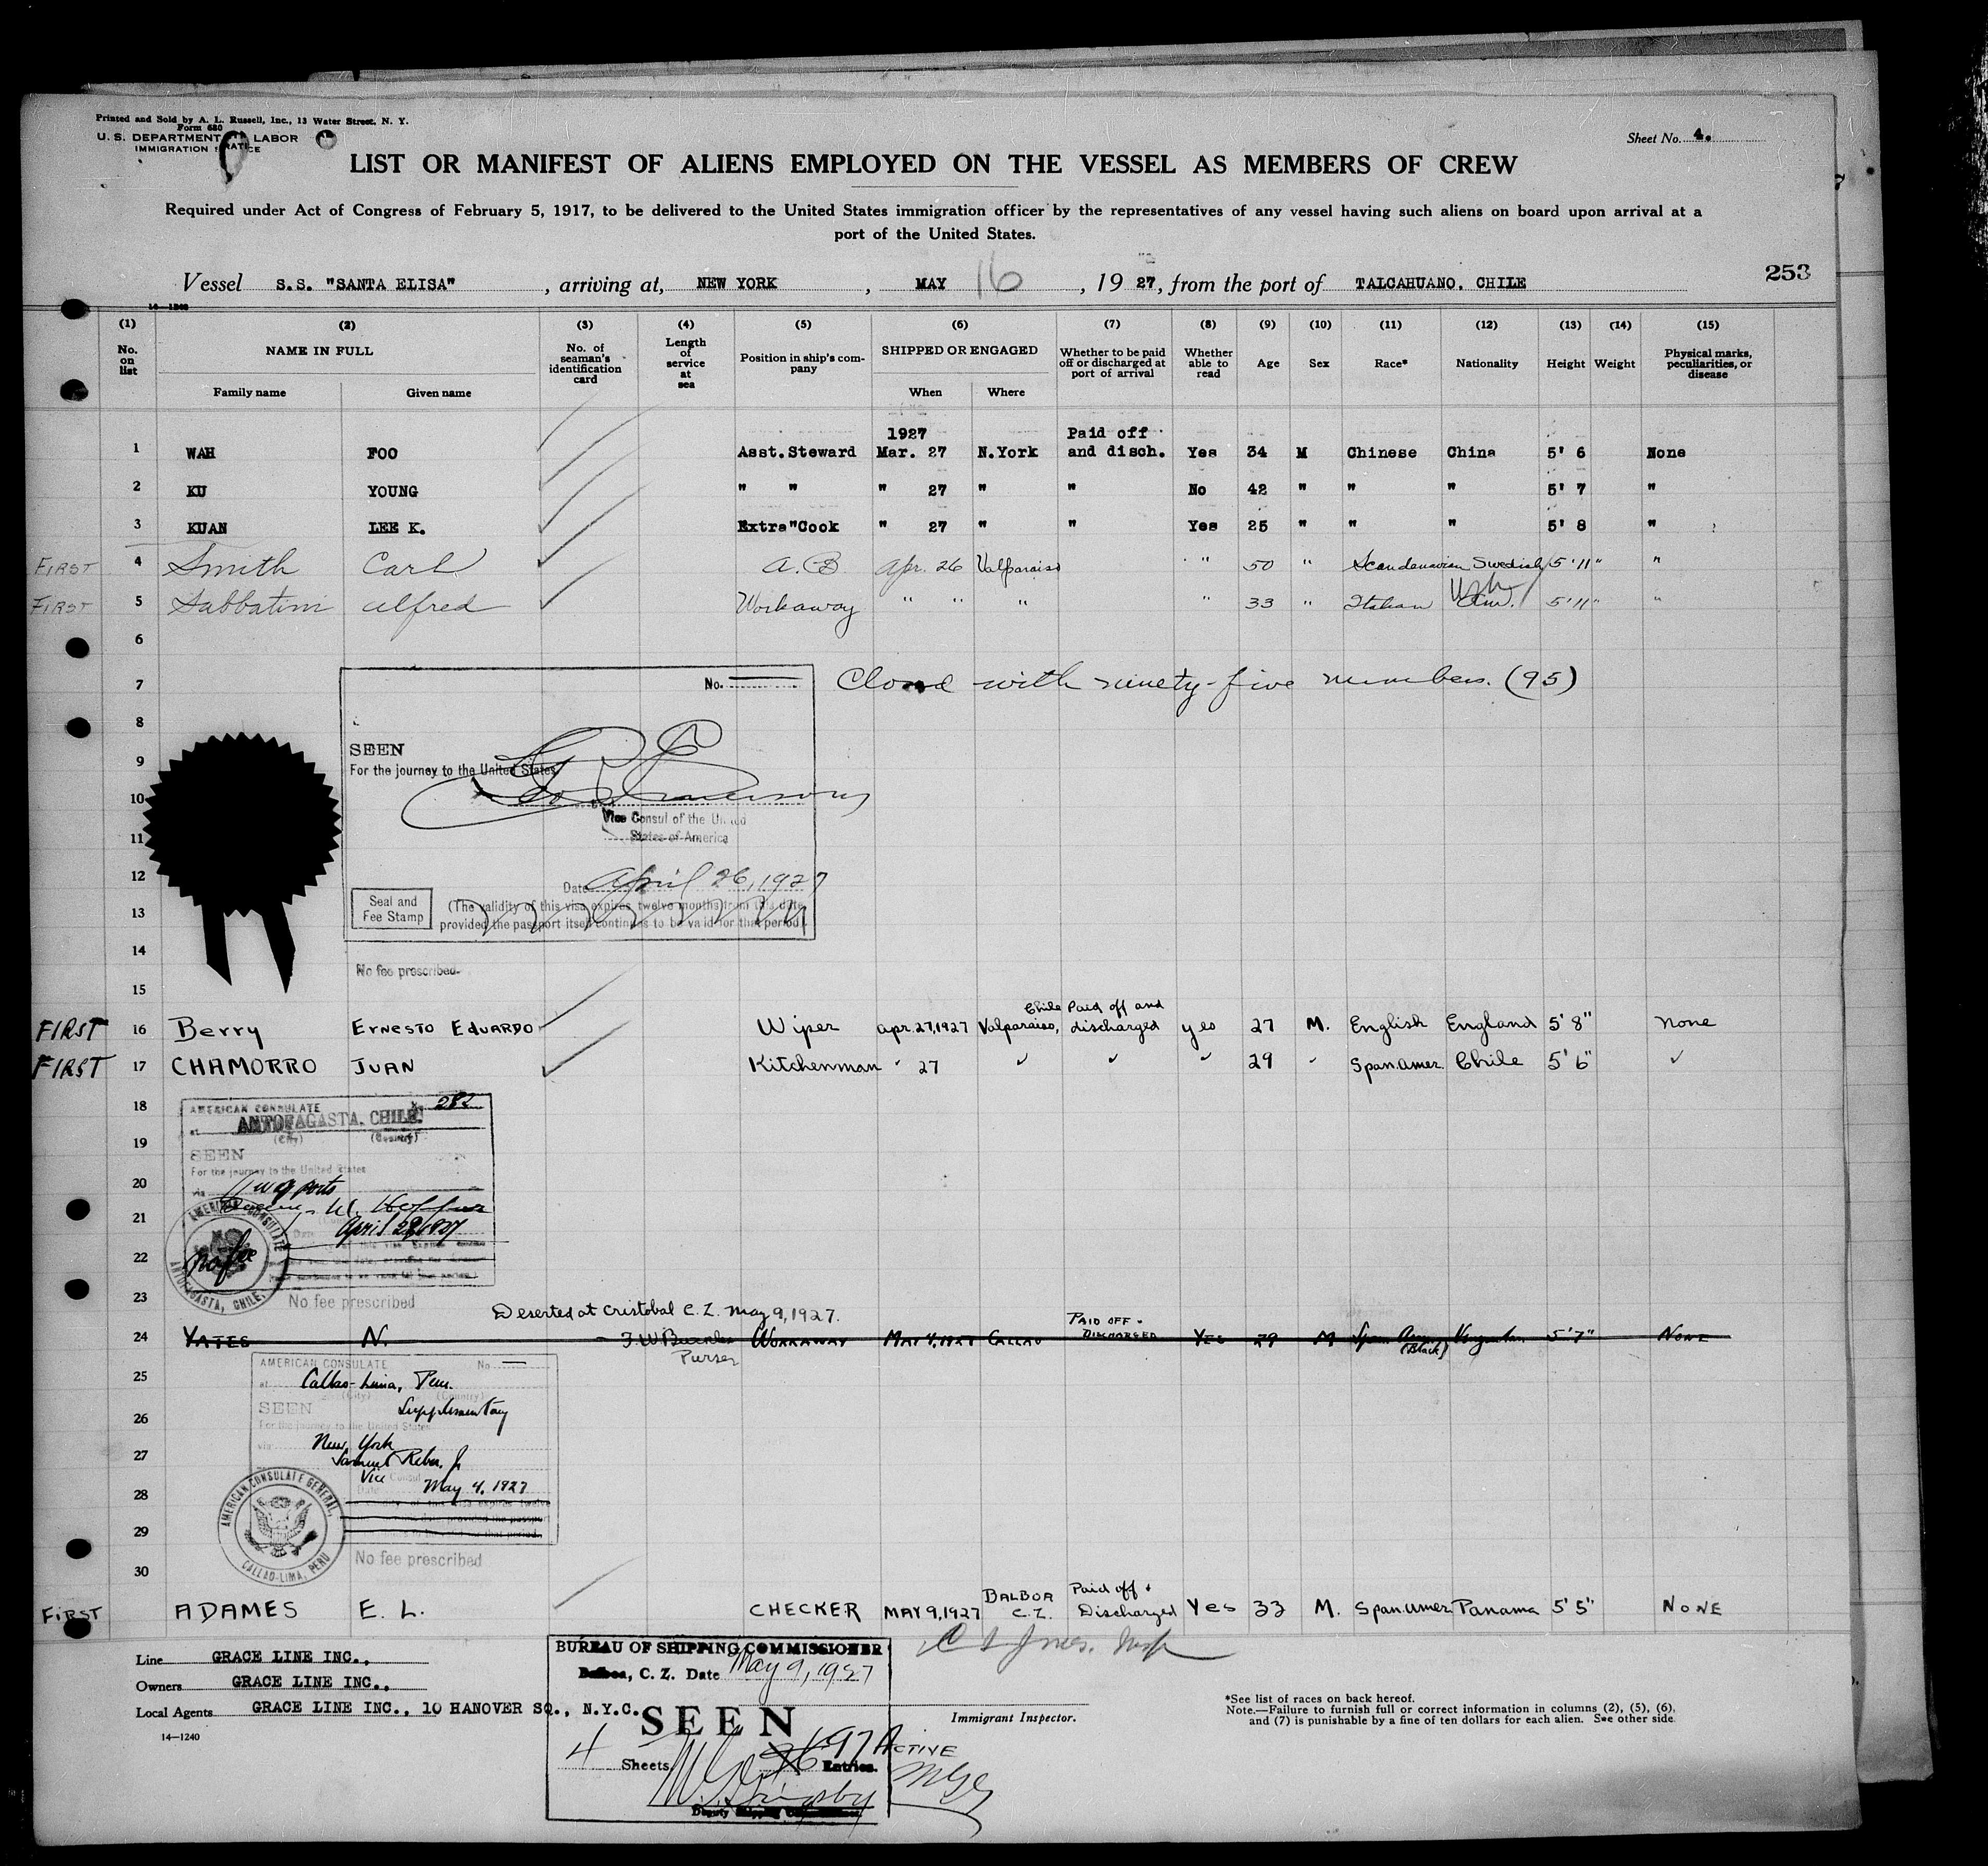 Printed and Sold by A. L. Russell, Inc., 13 Water Street, N. Y.
Form 680
U. S. DEPARTMENT LABOR
IMMIGRATION
Sheet No. 4.
LIST OR MANIFEST OF ALIENS EMPLOYED ON THE VESSEL AS MEMBERS OF CREW
Required under Act of Congress of February 5, 1917, to be delivered to the United States immigration officer by the representatives of any vessel having such aliens on board upon arrival at a
port of the United States.
Vessel S.S. "SANTA ELISA", arriving at, NEW YORK, MAY 16, 1927, from the port of TALCAHUANO, CHILE
253
14-1240
(1) (2) (3) (4) (5) (6) (7) (8) (9) (10) (11) (12) (13) (14) (15)
No. on list
NAME IN FULL
Family name Given name
No. of seaman's identification card
Length of service at sea
Position in ship's company
SHIPPED OR ENGAGED
When Where
Whether to be paid off or discharged at port of arrival
Whether able to read
Age
Sex
Race*
Nationality
Height
Weight
Physical marks, peculiarities, or disease
1 WAH FOO Asst. Steward 1927 Mar. 27 N.York Paid off and disch. Yes 34 M Chinese China 5' 6 None
2 KU YOUNG " " " 27 " " No 42 " " " 5' 7 "
3 KUAN LEE K. Extra"Cook " 27 " " Yes 25 " " " 5' 8 "
FIRST 4 Smith Carl A.B Apr. 26 Valparaiso " 50 " Scandanavian Swedish 5'11" "
FIRST 5 Sabbatini Alfred Workaway " " " " 33 " Italian 5'11" "
6
7 Closed with ninety-five members. (95)
No.
8
SEEN
9
For the journey to the United States
10
Vice Consul of the United
11
States of America
12
Date April 26, 1927
13
Seal and Fee Stamp
(The validity of this visa expires twelve months from this date
provided the passport itself continues to be valid for that period)
14
No fee prescribed.
15
FIRST 16 Berry ERNESTO EDUARDO Wiper Apr.27,1927 Valparaiso, Chile Paid off and discharged yes 27 M. English England 5' 8" none
FIRST 17 CHAMORRO JUAN Kitchenman " 27 " " " 29 " Span.Amer. Chile 5' 6" "
18
AMERICAN CONSULATE 282
at ANTOFAGASTA, CHILE.
(City) (Country)
19
SEEN
For the journey to the United States
20
via
21
April 28 1927
22
No fee
AMERICAN CONSULATE ANTOFAGASTA, CHILE.
23
No fee prescribed
Deserted at Cristobal C.Z. May 9, 1927.
24 YATES N. WORKAWAY MAY 4, 1927 CALLAO PAID OFF - DISCHARGED YES 29 M Span. Amer. (Black) 5'7" NONE
Purser
AMERICAN CONSULATE No
25
at Callao-Lima, Peru.
(City) (Country)
SEEN Supplementary
26
For the journey to the United States
via New York
27
Samuel Reber, Jr
Vice Consul
Date May 4, 1927
28
AMERICAN CONSULATE GENERAL, CALLAO-LIMA, PERU
29
No fee prescribed
30
FIRST ADAMES E. L. CHECKER MAY 9, 1927 BALBOA C.Z. Paid off + Discharged Yes 33 M. Span.Amer Panama 5' 5" NONE
Line GRACE LINE INC.,
Owners GRACE LINE INC.,
Local Agents GRACE LINE INC., 10 HANOVER SQ., N.Y.C.
14-1240
BUREAU OF SHIPPING COMMISSIONER
Balboa, C. Z. Date May 9, 1927
SEEN
4 Sheets 96 97 ACTIVE
Entries.
Deputy Shipping Commissioner
Immigrant Inspector.
*See list of races on back hereof.
Note.—Failure to furnish full or correct information in columns (2), (5), (6),
and (7) is punishable by a fine of ten dollars for each alien. See other side.